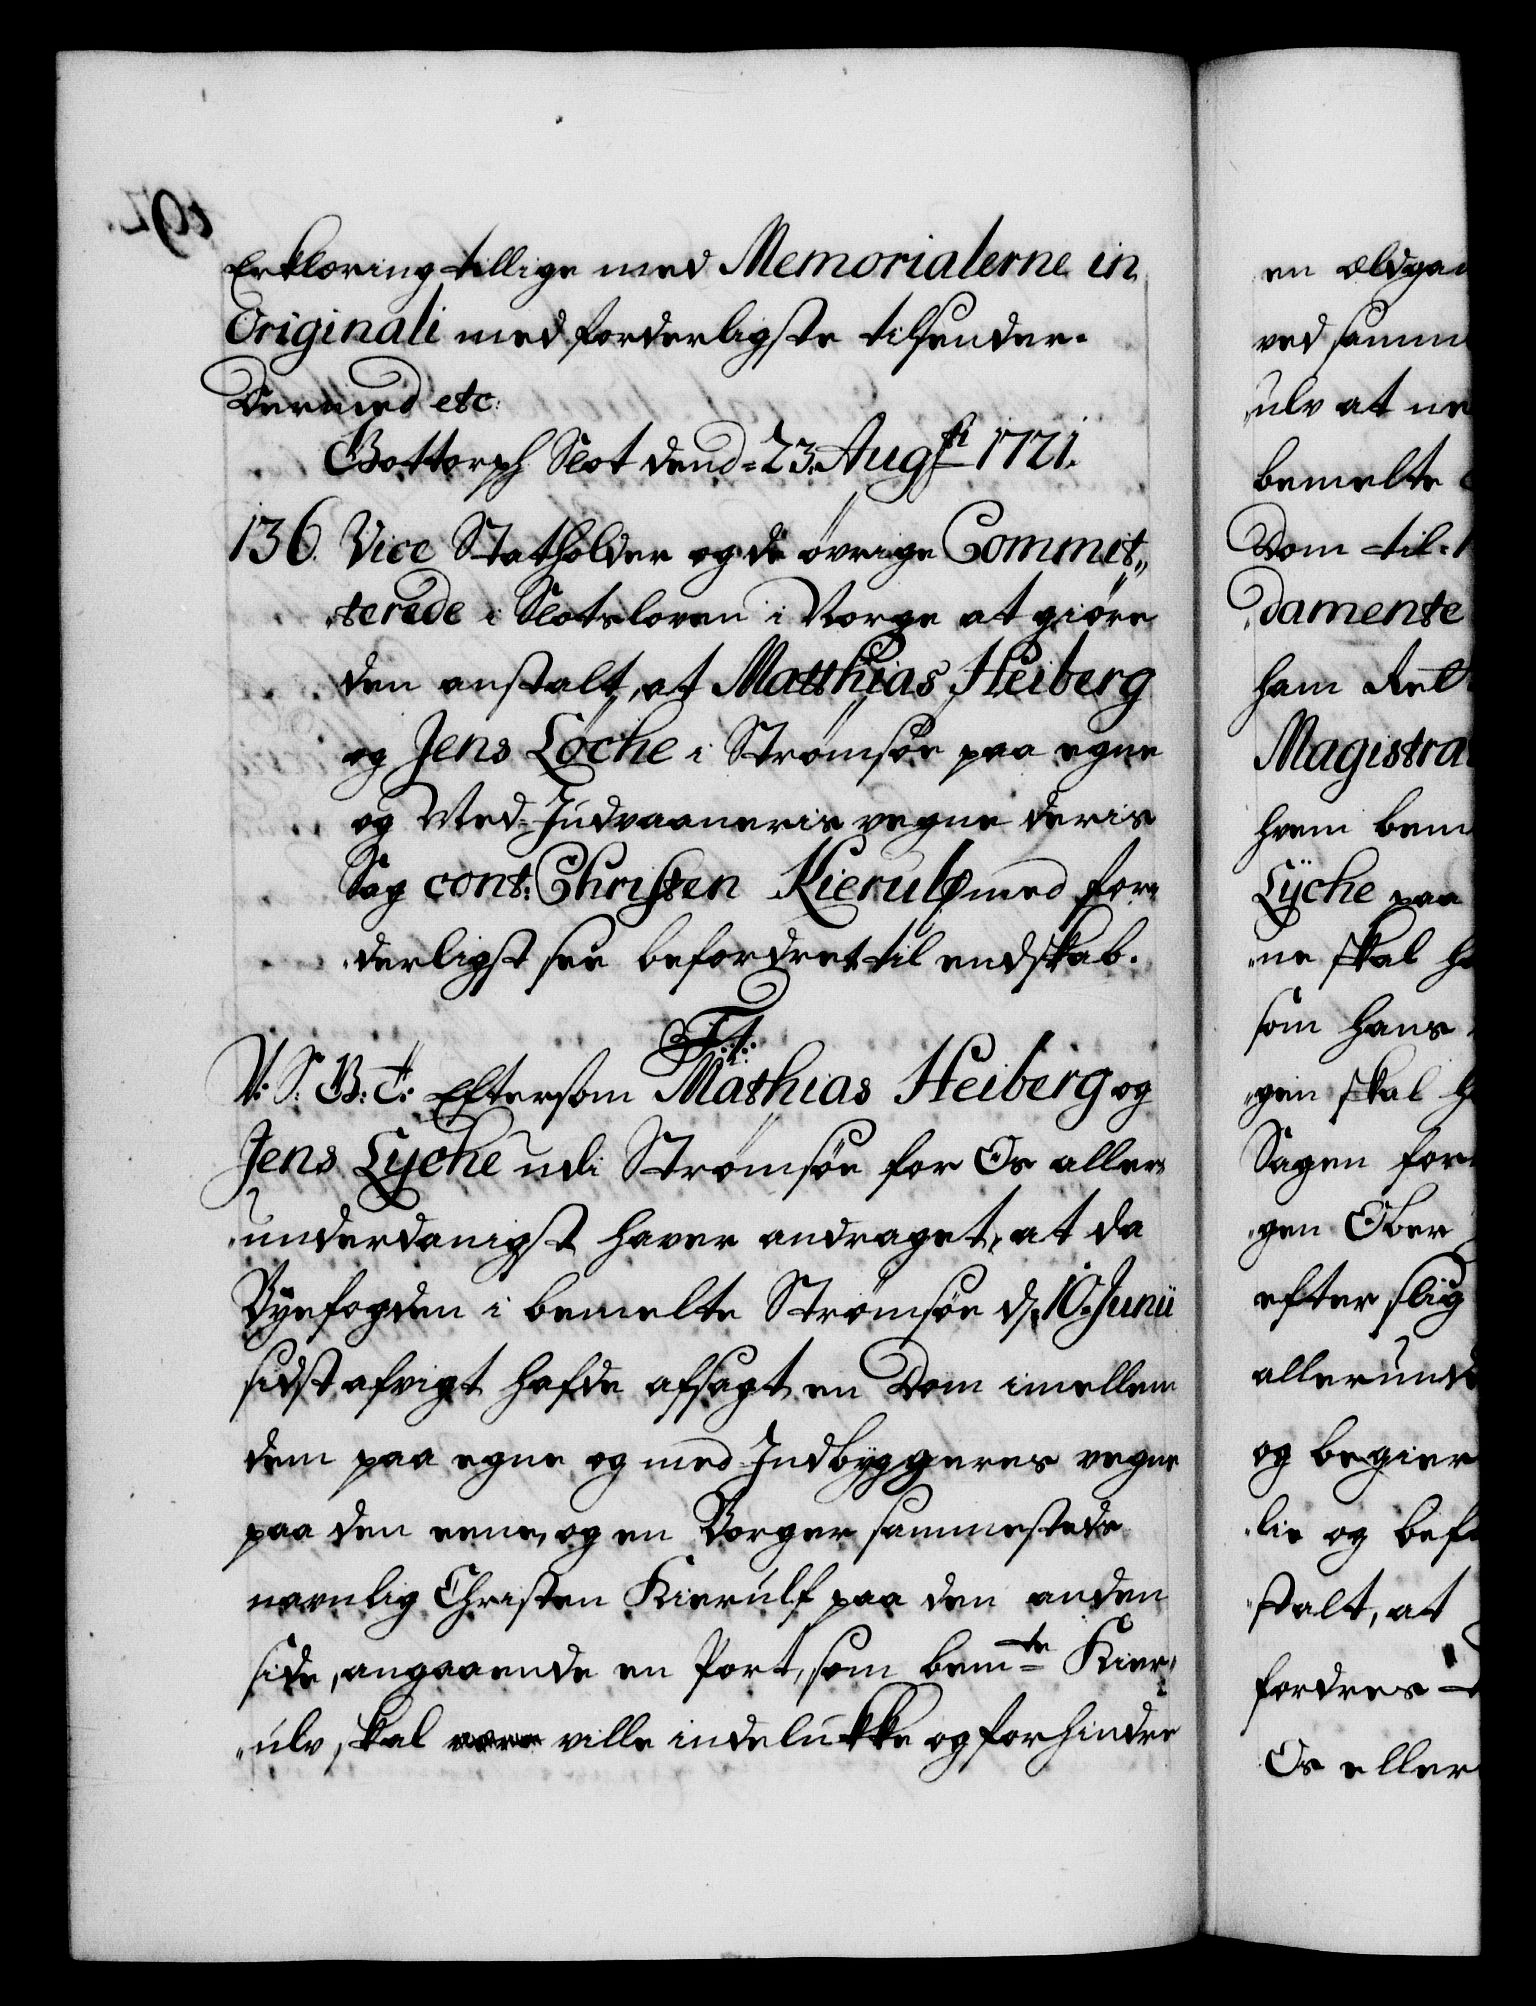 Erklæring tillige med Memorialerne in
Originali med forderligste tilsender.
Dermed etc:
Gottorph Slot dend=23. Augsti 1721.
136. Vice Statholder og de øvrige Commit„
„terede i Slotsloven i Norge at giøre
den anstalt, at Matthias Heiberg
og Jens Löche i Strømsøe paa egne
og Med-Indvaaneris vegne deris
Sag cont: Christen Kierulf med for„
„derligst see befordret til endskab.
F:4:
V: S: B: T: Eftersom Mathias Heiberg og
Jens Lyche udi Strømsøe for Os aller„
„underdanigst haver andraget, at da
Byefogden i bemelte Strømsøe d: 10. Junii
sidst afvigt hafde afsagt en Dom imellem
dem paa egne og med-Indbyggeres vegne
paa den eene, og en Borger sammestede
navnlig Christen Kierulf paa den anden
side, angaaende en Port, som bemte Kier„
„ulv, skal ville indelukke og forhindre
en
ved
„ulv at
bemelte
Dom til
damente
ham
hvem
Lÿche paa
„ne skal
som hans
„gen skal
Sagen for
„gen Ober
efter slig
og
„lie og
„stalt, at
fordres
Os eller